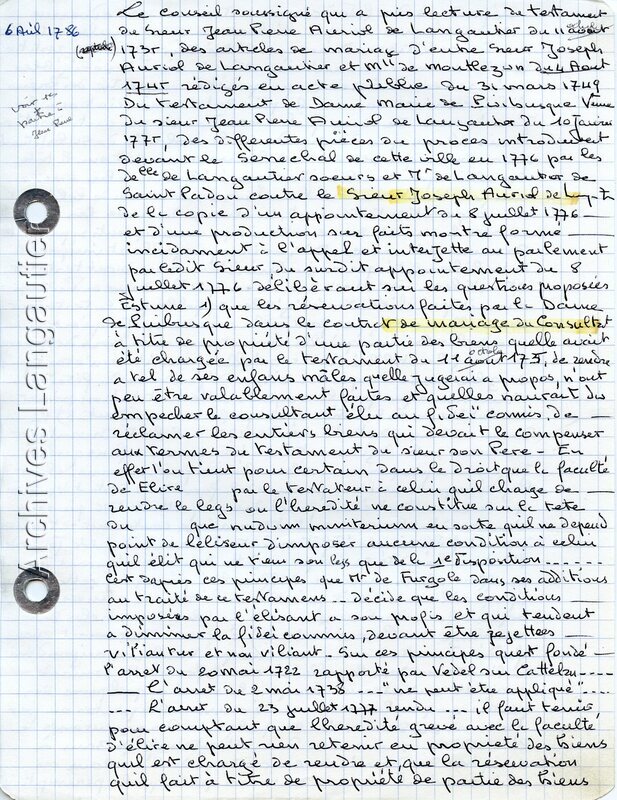 6 Avril 1786
Le conseil soussigné qui a pris lecture de testament
du Sieur Jean Pierre Auriol de Langautier du 11 août
octobre
1735, des articles de mariage d'entre Sieur Joseph
Auriol de Langautier et Mlle de Montlezun du 4 Août
1745 rédigés en acte publique du 31 mars 1749
voir le
Jean Pierre
Du testament de Dame Marie de Puibusque Veuve
du sieur Jean Pierre Auriol de Langautier du 10 Janvier
1775, des differentes pièces du proces introduit
devant le Senechal de cette ville en 1776 par les
delles de Langautier soeurs et Mr de Langautier de
Saint Padou contre le Sieur Joseph Auriol de
de la copie d'un appointement du 8 juillet 1776
et d'une production sur faits montre formé
incidament à l'appel et interjette au parlement
par ledit Sieur du susdit appointement du 8
juillet 1776 délibérant sur les questions proposées
Estime 1) que les réservations faites par la Dame
de Puibusque dans le contrat de mariage du Consultant
à titre de propriété d'une partie des biens quelle avait
été chargée par le testament du 11 août 1735, de rendre
octobre
a tel de ses enfans mâles quelle jugerai a propos, n'ont
peu être valablement faites et quelles naurait du
empecher le consultant élu au fideï comis, de
réclamer les entiers biens qui devait le compenser
aux termes du testament du sieur son Pere - En
effet l'on tient pour certain dans le droit que la faculté
de Elire par le testateur à celui quil charge de
rendre le legs ou l'heredité ne constitue sur la tete
du que nudum ministerium en sorte quil ne depend
point de l'éliseur d'imposer aucune condition à celui
quil élit qui ne tien son legs que de la 1e disposition
c'est daprès ces principes que Mr de Furgole dans ses additions
au traité de ce testamens ... décide que les conditions
imposées par l'élisant a son profis et qui tendent
a diminuer la fidei commis, devant être rejettees
viliantur et non viliant. Sur ces principes quest fondé
l'arret du 20 mai 1722 rapporté par Vedel sur Cattelan
L'arret du 2 mai 1738 ... "ne peut être appliqué"
L'arret du 23 juillet 1777 rendu ... il faut tenir
pour comptant que lheredité grevé avec la faculté
d'élire ne peut rien retenir en propriete des biens
quil est chargé de rendre et que la réservation
quil fait à titre de propriété de partie des biens
Archives Langautier